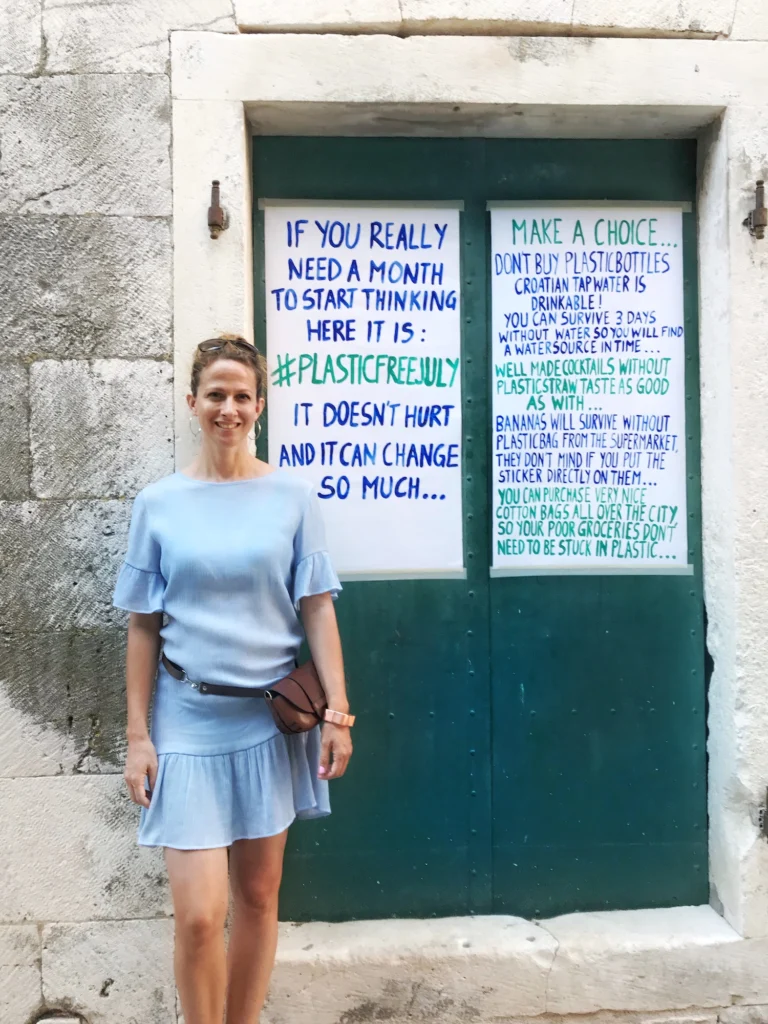 IF YOU REALLY
NEED A MONTH
TO START THINKING
HERE IT IS :
#PLASTICFREEJULY
IT DOESN'T HURT
AND IT CAN CHANGE
SO MUCH...
MAKE A CHOICE...
DON'T BUY PLASTICBOTTLES
CROATIAN TAPWATER IS
DRINKABLE!
YOU CAN SURVIVE 3 DAYS
WITHOUT WATER SO YOU WILL FIND
A WATERSOURCE IN TIME...
WELL MADE COCKTAILS WITHOUT
PLASTICSTRAW TASTE AS GOOD
AS WITH...
BANANAS WILL SURVIVE WITHOUT
PLASTICBAG FROM THE SUPERMARKET,
THEY DON'T MIND IF YOU PUT THE
STICKER DIRECTLY ON THEM...
YOU CAN PURCHASE VERY NICE
COTTON BAGS ALL OVER THE CITY
SO YOUR POOR GROCERIES DON'T
NEED TO BE STUCK IN PLASTIC...